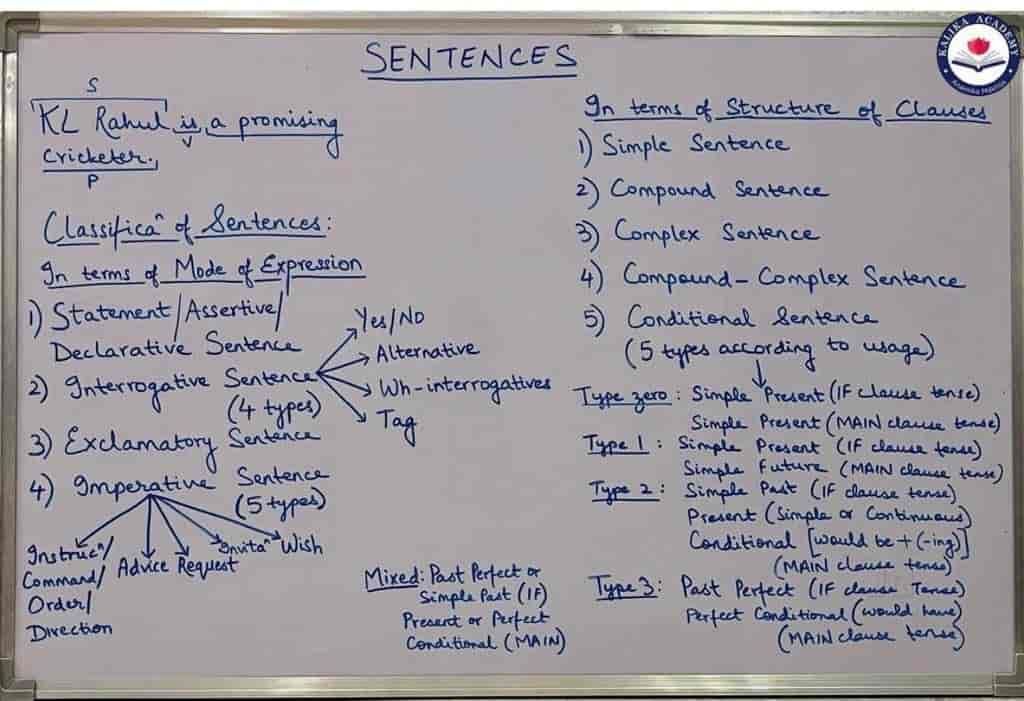 SENTENCES
KALIKA ACADEMY
S
KL Rahul is a promising
V
Cricketer.
P
Classificaⁿ of Sentences:
In terms of Mode of Expression
1) Statement/Assertive/
Declarative Sentence
2) Interrogative Sentence
(4 types)
Yes/No
Alternative
Wh-interrogatives
Tag
3) Exclamatory Sentence
4) Imperative Sentence
(5 types)
Instrucⁿ/
Command/
Order/
Direction
Advice
Request
Invitaⁿ
Wish
Mixed: Past Perfect or
Simple Past (IF)
Present or Perfect
Conditional (MAIN)
In terms of Structure of Clauses
1) Simple Sentence
2) Compound Sentence
3) Complex Sentence
4) Compound-Complex Sentence
5) Conditional Sentence
(5 types according to usage)
Type zero: Simple Present (IF clause tense)
Simple Present (MAIN clause tense)
Type 1: Simple Present (IF clause tense)
Simple Future (MAIN clause tense)
Type 2: Simple Past (IF clause tense)
Present (Simple or Continuous)
Conditional [would be + (-ing)]
(MAIN clause tense)
Type 3: Past Perfect (IF clause Tense)
Perfect Conditional (would have)
(MAIN clause tense)